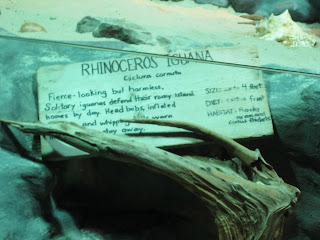 RHINOCEROS IGUANA
Cyclura cornuta
Fierce-looking but harmless,
Solitary iguanas defend their rocky island
homes by day. Head bobs, inflated
and whipping warn
stay away.
SIZE: up to 4 feet
DIET:
HABITAT: Rocky